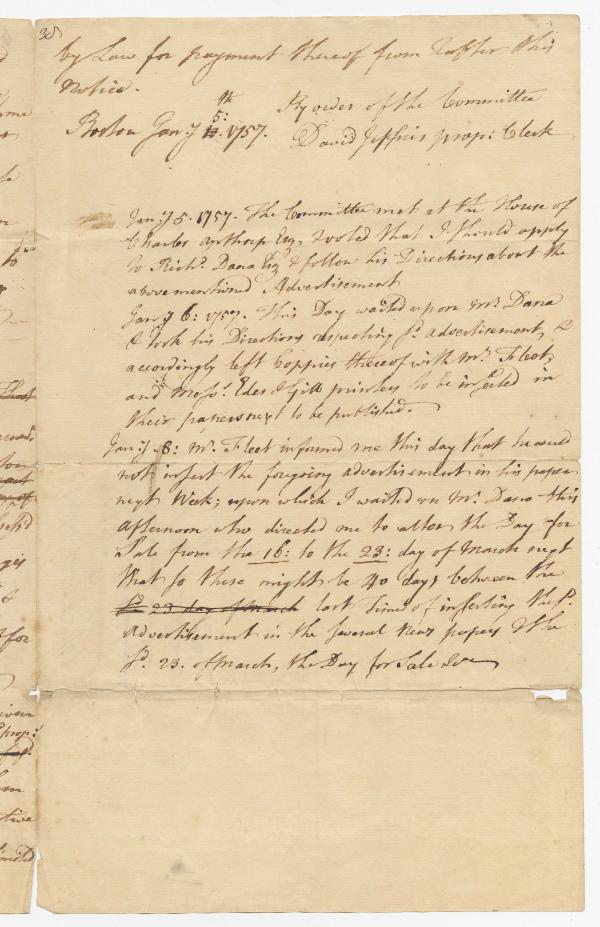 3d
by Law for payment thereof from & after this
Notice.
By order of the Committee
Boston Janʸ 5:ᵗʰ 1757.
David Jeffries prop: Clerk
Janʸ 5. 1757. The Committee met at the House of
Charles Apthorp Esqʳ & voted that I should apply
to Richᵈ Dana Esqʳ & follow his Directions about the
abovementioned Advertisement
Janʸ 6: 1757. This Day waited upon Mʳ Dana
& took his Directions respecting sᵈ advertisement, &
accordingly left Coppies thereof with Mʳ Fleet,
and Messʳˢ Edes & Gill printers to be inserted in
their papers next to be published.
Janʸ 8: Mʳ Fleet informed me this day that he could
not insert the forgoing advertisement in his paper
next Week; upon which I waited on Mʳ Dana this
afternoon who directed me to alter the Day for
Sale from the 16: to the 23: day of March next
that so there might be 40 days between the
sᵈ 23 day of March last time of inserting the sᵈ
advertisement in the several News papers & the
sᵈ 23. of March, the Day for Sale &c